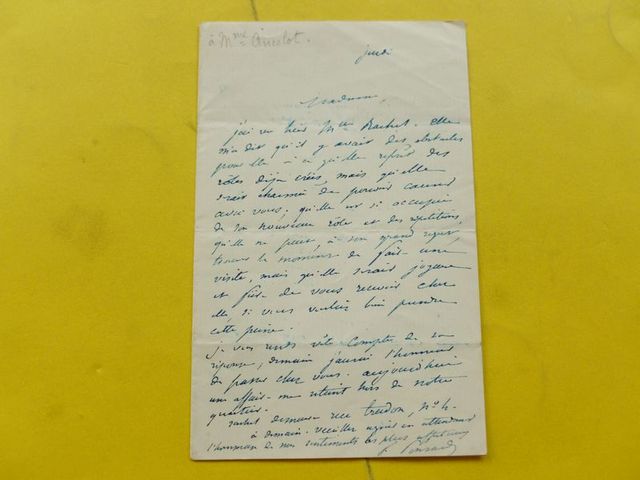 à Mme Ancelot.
jeudi
Madame,
j'ai vu hier Mlle Rachel. elle
m'a dit qu'il y avait des obstacles
pour elle à ce qu'elle reprît des
rôles déjà créés, mais qu'elle
serait charmée de pouvoir causer
avec vous; qu'elle est si occupée
de son nouveau rôle et des répétitions,
qu'elle ne peut, à son grand regret,
trouver le moment de faire une
visite, mais qu'elle serait joyeuse
et fière de vous recevoir chez
elle, si vous vouliez bien prendre
cette peine.
je vous rends vite compte de sa
réponse; demain j'aurai l'honneur
de passer chez vous. aujourd'hui
une affaire me retient hors de notre
quartier.
Rachel demeure rue Trudon, no 4.
à demain. veuillez agréer en attendant
l'hommage de mes sentiments les plus
F. Ponsard